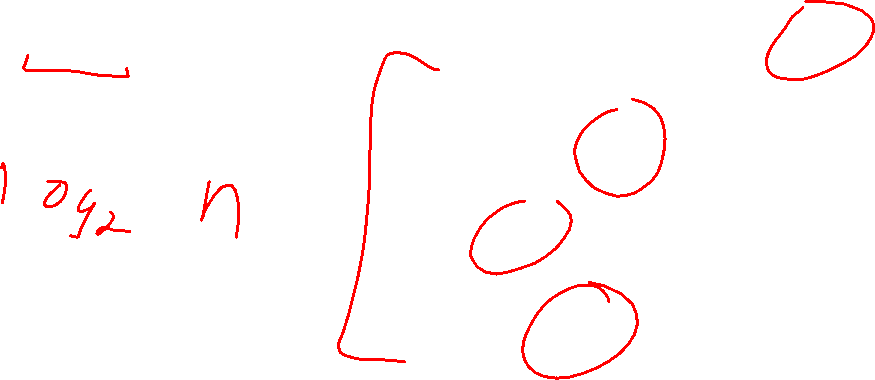 log₂ n